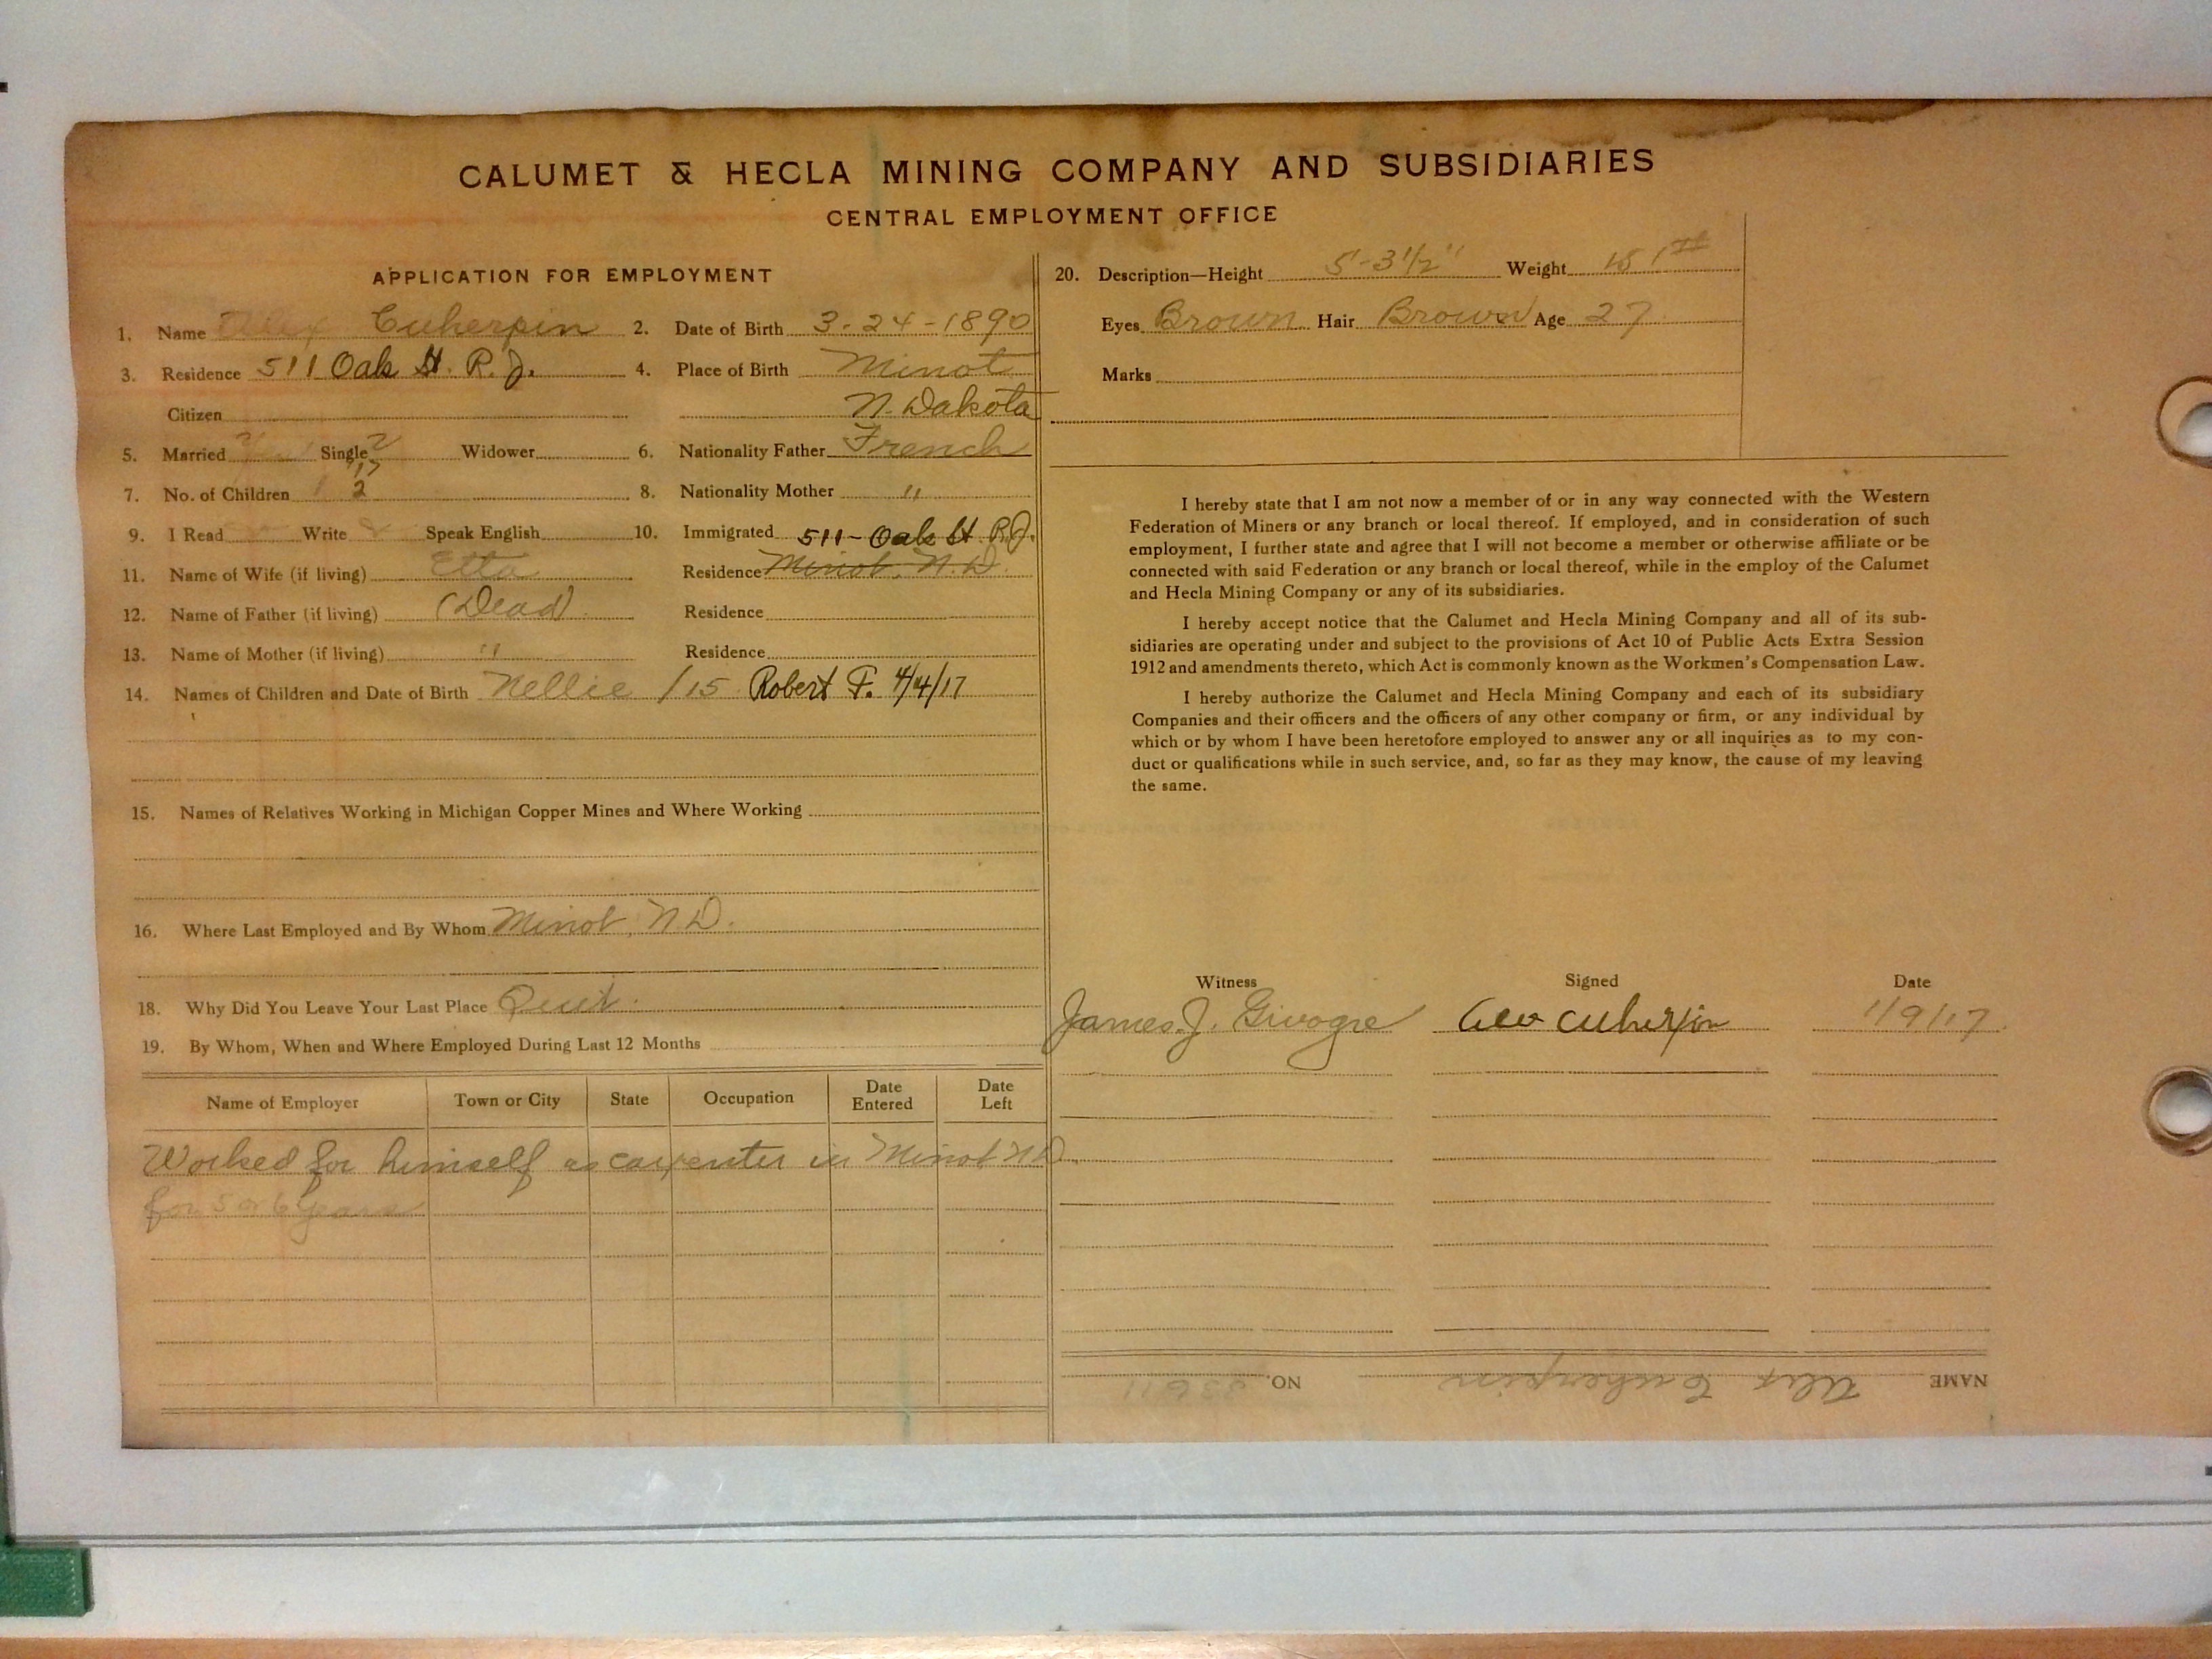 CALUMET & HECLA MINING COMPANY AND SUBSIDIARIES
CENTRAL EMPLOYMENT OFFICE
APPLICATION FOR EMPLOYMENT
1. Name Alex Cuherpin 2. Date of Birth 3-24-1890
3. Residence 511 Oak St. R. J. 4. Place of Birth Minot
Citizen N. Dakota
5. Married Single Widower 6. Nationality Father French
7. No. of Children 1 2 8. Nationality Mother "
9. I Read Write Speak English 10. Immigrated 511- Oak St R.J.
11. Name of Wife (if living) Etta Residence Minot, N.D.
12. Name of Father (if living) (Dead) Residence
13. Name of Mother (if living) " Residence
14. Names of Children and Date of Birth Nellie /15 Robert F. 4/4/17
15. Names of Relatives Working in Michigan Copper Mines and Where Working
16. Where Last Employed and By Whom Minot, N.D.
18. Why Did You Leave Your Last Place Quit.
19. By Whom, When and Where Employed During Last 12 Months
Name of Employer Town or City State Occupation Date Entered Date Left
Worked for himself as carpenter in Minot N.D.
for 5 or 6 years
20. Description—Height 5'-3 1/2" Weight
Eyes Brown Hair Brown Age 27
Marks
I hereby state that I am not now a member of or in any way connected with the Western
Federation of Miners or any branch or local thereof. If employed, and in consideration of such
employment, I further state and agree that I will not become a member or otherwise affiliate or be
connected with said Federation or any branch or local thereof, while in the employ of the Calumet
and Hecla Mining Company or any of its subsidiaries.
I hereby accept notice that the Calumet and Hecla Mining Company and all of its sub-
sidiaries are operating under and subject to the provisions of Act 10 of Public Acts Extra Session
1912 and amendments thereto, which Act is commonly known as the Workmen's Compensation Law.
I hereby authorize the Calumet and Hecla Mining Company and each of its subsidiary
Companies and their officers and the officers of any other company or firm, or any individual by
which or by whom I have been heretofore employed to answer any or all inquiries as to my con-
duct or qualifications while in such service, and, so far as they may know, the cause of my leaving
the same.
Witness Signed Date
James J. Cuherpin 1/9/17
NAME Alex Cuherpin NO.